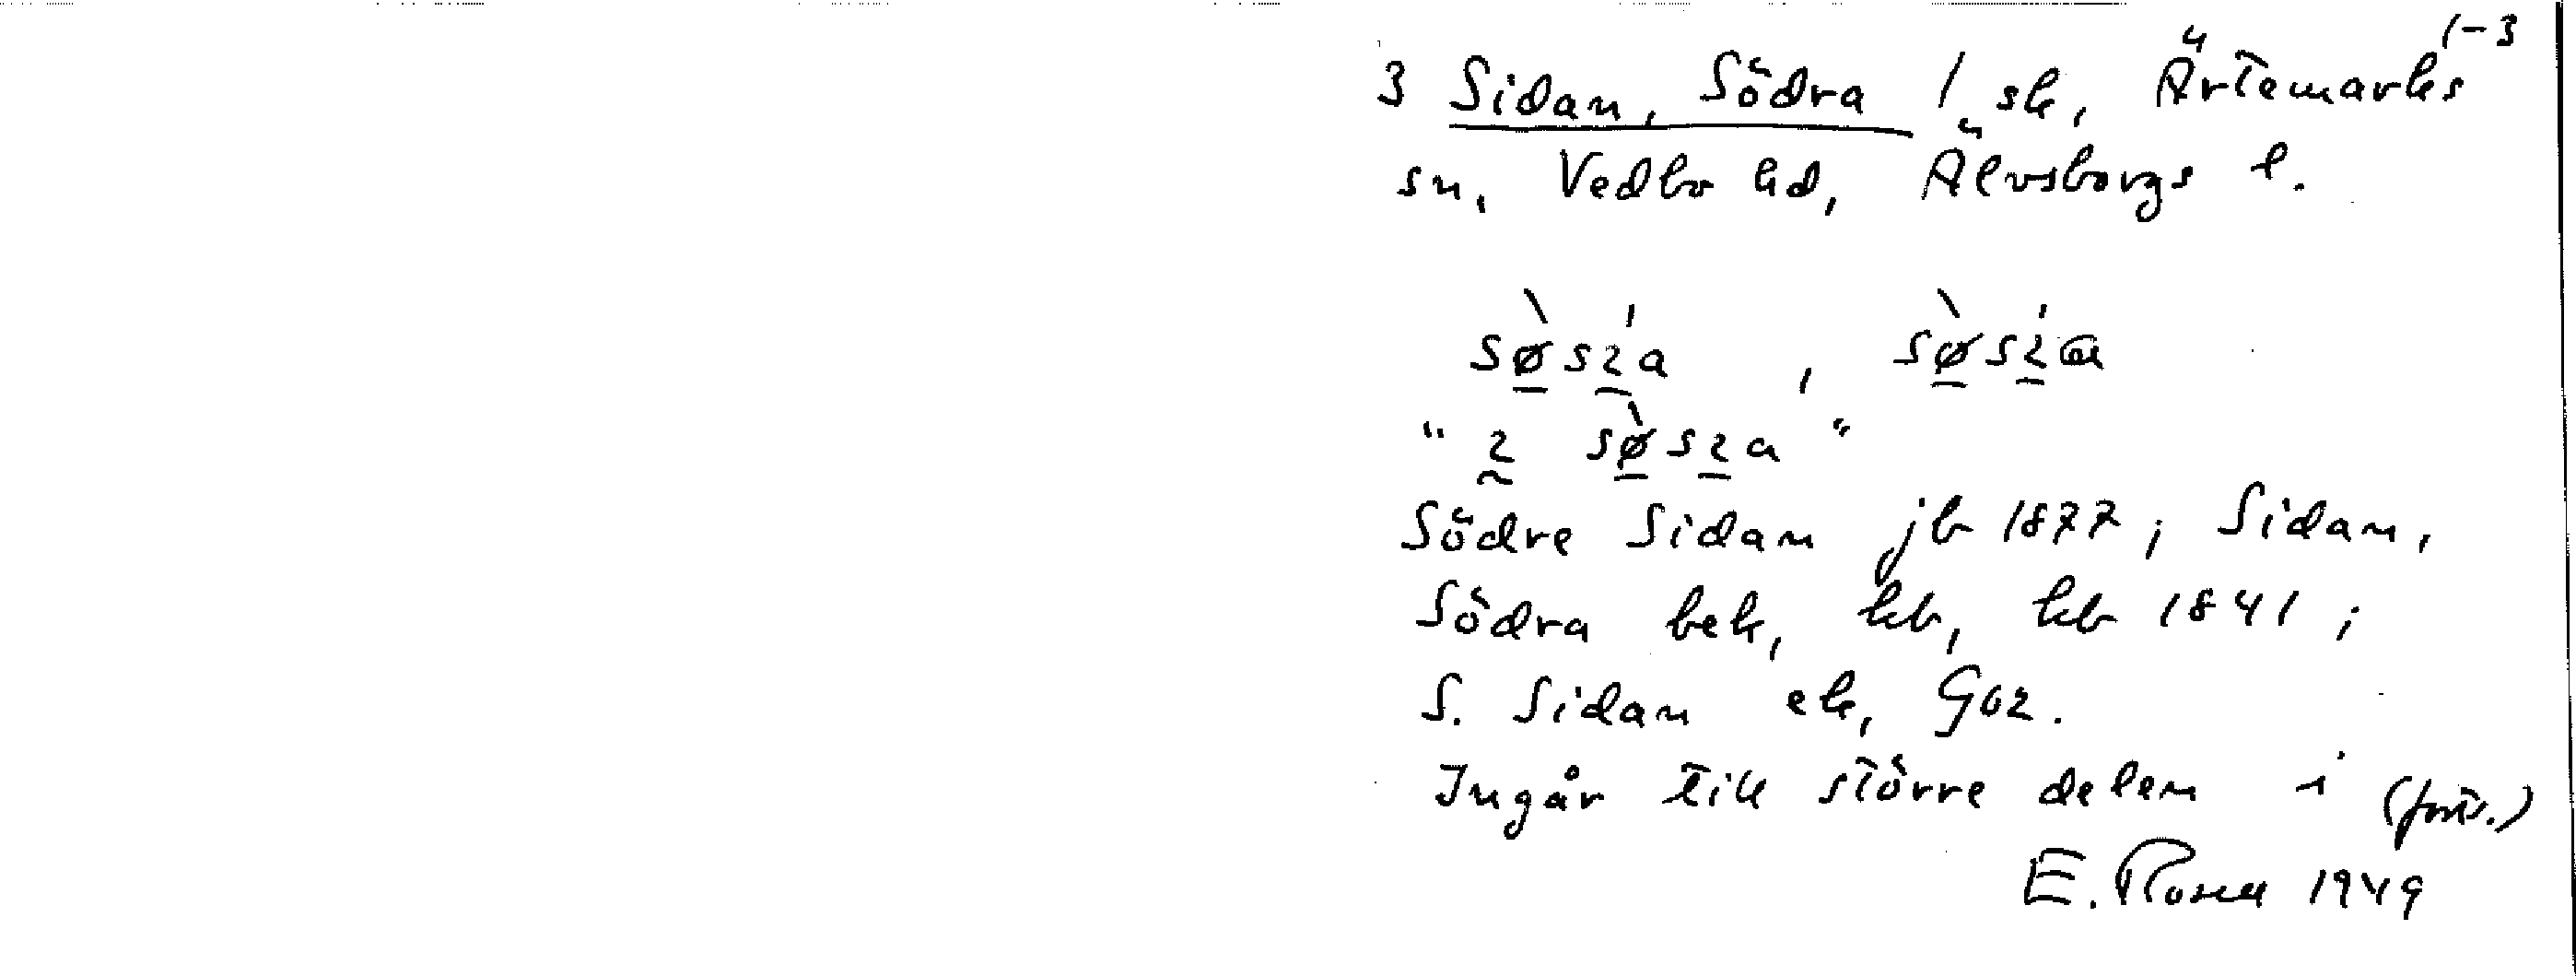 1-3
3 Sidan, Södra 1 sk, Ärtemarks
sn, Vedbo hd, Älvsborgs l.
Södre Sidan jb 1877; Sidan,
Södra bek, kb, kb 1841;
S. Sidan ek, Goz.
Ingår till större delen i (forts.)
E. Rosell 1949